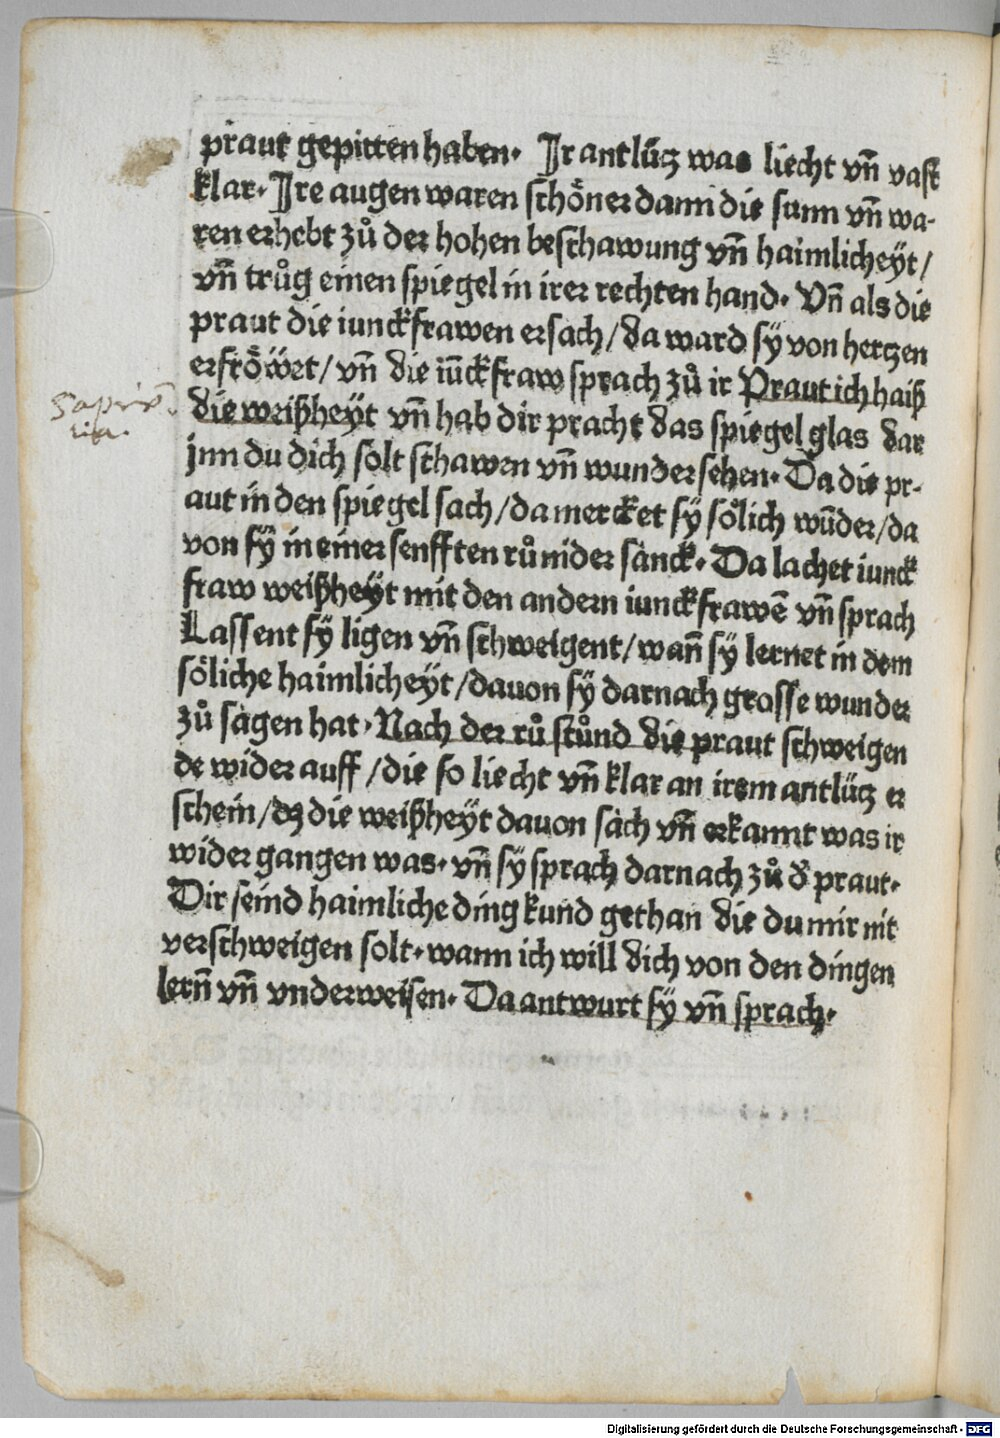 praut gepitten haben. Ir antlütz was liecht vñ vast
klar. Ire augen waren schöner dann die sunn vñ wa-
ren erhebt zů der hohen beschawung vñ haimlicheyt/
vñ trůg einen spiegel in irer rechten hand. Vñ als die
praut die iunckfrawen ersach/da ward sy von hertzen
erfröwrt/ vñ die iūckfraw sprach zů ir Praut ich haiß
die weißheyt vñ hab dir pracht das spiegel glas dar
jnn du dich solt schawen vñ wunder sehen. Da die pr-
aut in den spiegel sach/da mercket sy sölich wūder/da
von sy in einer senfften rů nider sanck. Da lachet iunck
fraw weißheyt mit den andern iunckfrawē vñ sprach
Lassent sy ligen vñ schweigent/wañ sy lernet in dem
söliche haimlicheyt/dauon sy darnach grosse wunder
zů sagen hat. Nach der rů stůnd die praut schweigen
de wider auff/die so liecht vñ klar an irem antlütz er
schein/dz die weißheyt dauon sach vñ erkannt was ir
wider gangen was. vñ sy sprach darnach zů d' praut.
Dir seind haimliche ding kund gethan die du mir nit
verschweigen solt. wann ich will dich von den dingen
lerñ vñ vnderweisen. Da antwurt sy vñ sprach.